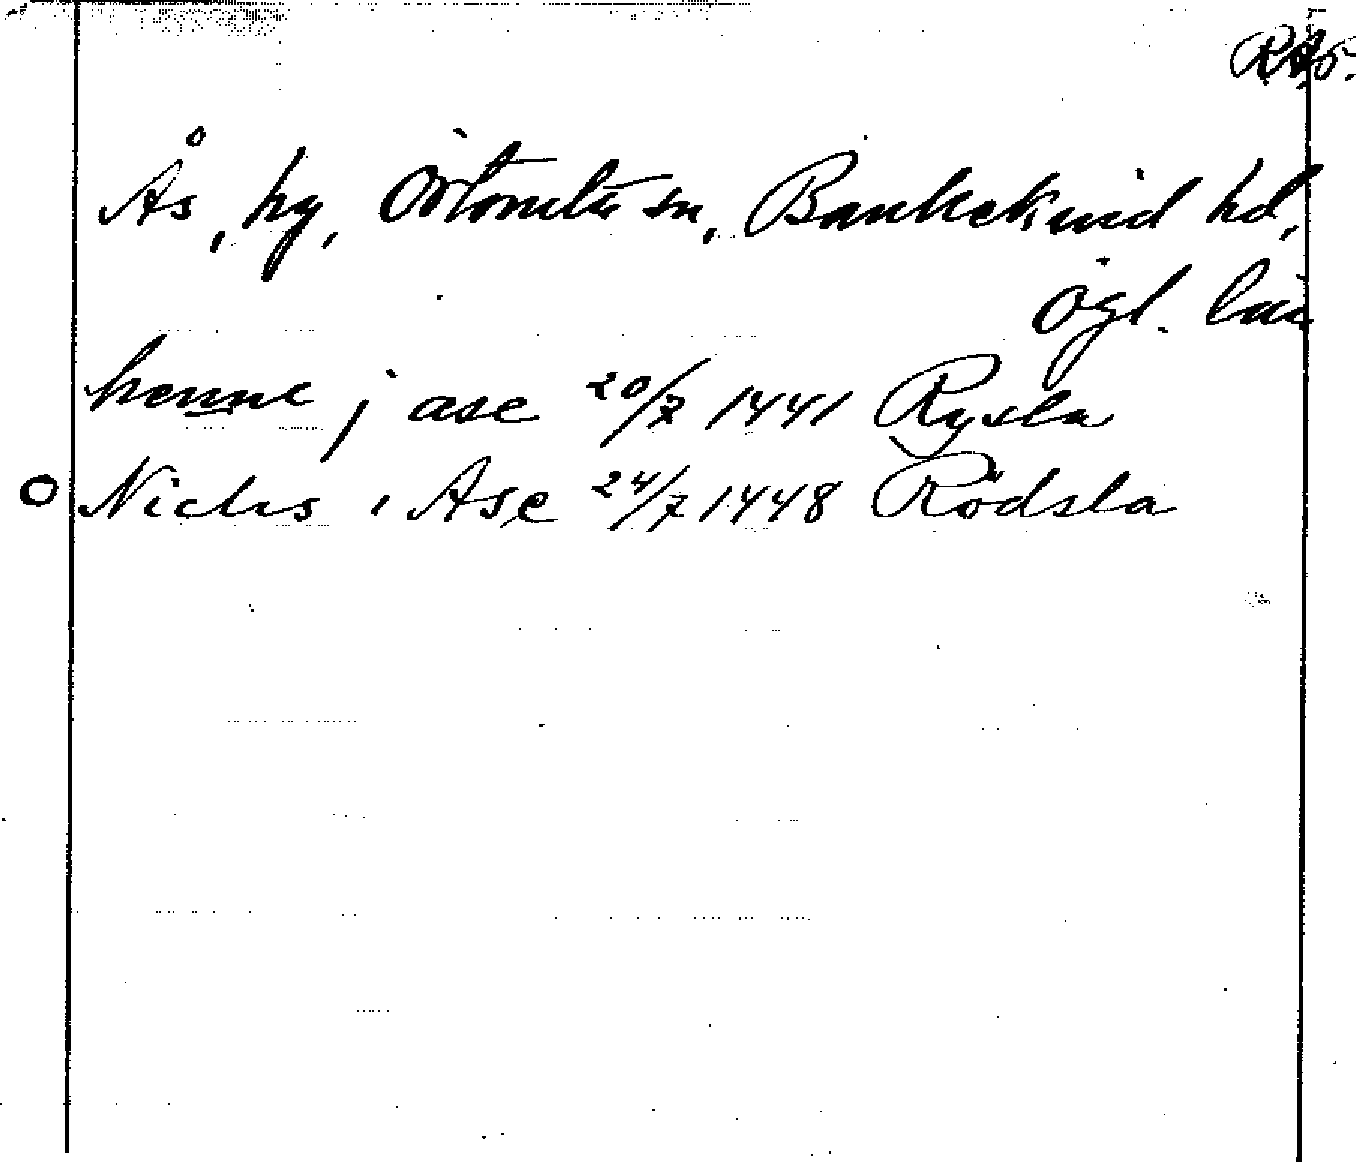 RAp.
Ås, by, Örtomta sn, Bankekind hd,
Ögl. län
henne j ase 20/7 1441 Rysla
Niclis i Ase 24/7 1448 Rödsla